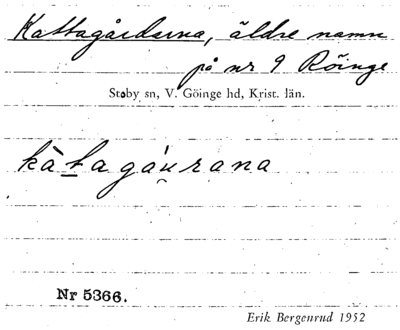 Kattagårdarna, äldre namn
på nr 9 Röinge
Stoby sn, V. Göinge hd, Krist. län.
kàtagáu̯rana
Nr 5366.
Erik Bergenrud 1952